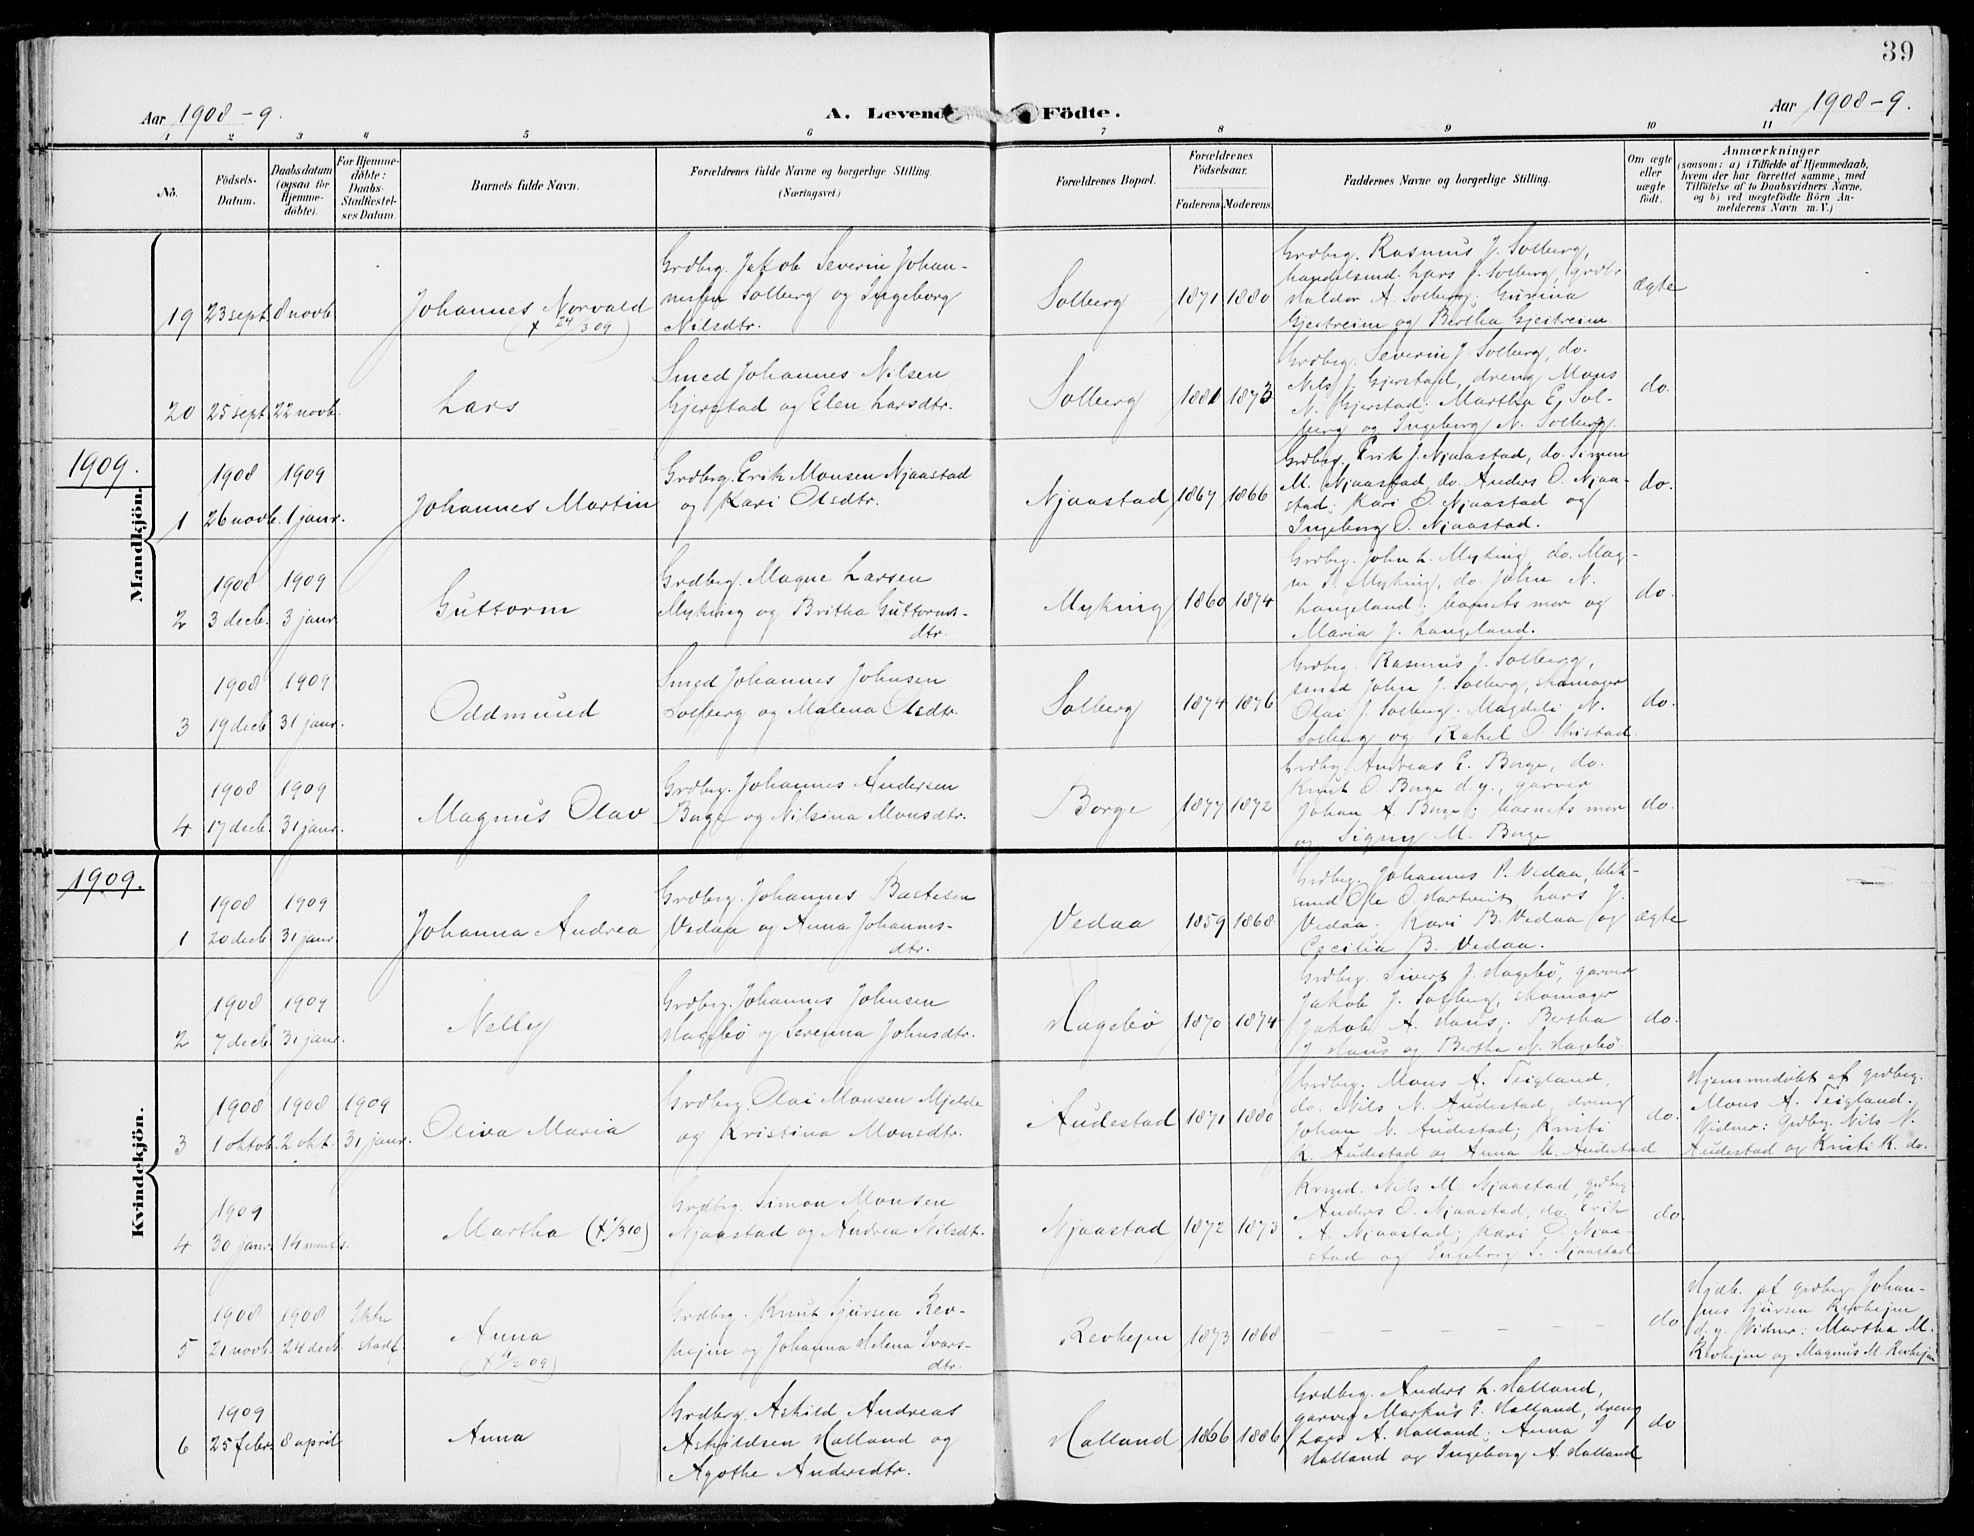 39
Aar 1908-9.
A. Levende Födte.
Aar 1908-9.
1 2 3 4 5 6 7 8 9 10 11
No.
Födsels-Datum.
Daabsdatum (ogsaa for Hjemmedöbte).
For Hjemmedöbte: Daabs-Stadfæstelses Datum.
Barnets fulde Navn.
Forældrenes fulde Navne og borgerlige Stilling.
(Næringsvei.)
Forældrenes Bopæl.
Forældrenes Födselsaar.
Faderens Moderens
Faddernes Navne og borgerlige Stilling.
Om ægte eller uægte født.
Anmærkninger
(saasom: a) i Tilfælde af Hjemmedaab, hvem der har forrettet samme, med Tilföielse af to Daabsvidners Navne, og b) ved uægtefödte Börn Anmelderens Navn m. V.)
Mandkjön.
19 23 sept. 8 novb.
Johannes Norvald
(+ 24/3 09)
Grdbrg. Jakob Severin Johan-
nesen Solberg og Ingeborg
Nilsdtr.
Solberg 1871 1880
Grdbrg. Rasmus J. Solberg,
handelsmd. Lars J. Solberg, grdbr.
Haldor A. Solberg; Gurina
Gjestreim og Bertha Gjestreim.
ægte
20 25 sept. 22 novb.
Lars
Smed Johannes Nilsen
Gjerstad og Elen Larsdtr.
Solberg 1881 1873
Grdbrg. Severin J. Solberg, do.
Nils J. Gjerstad, dreng Mons
N. Gjerstad; Martha E. Sol-
berg og Ingeborg N. Solberg.
do.
1909.
1908 1909
1 26 novb. 1 janr.
Johannes Martin
Grdbrg. Erik Monsen Njaastad
og Kari Olsdtr.
Njaastad 1867 1866
Grdbrg. Erik J. Njaastad, do. Simon
M. Njaastad, do. Anders O. Njaa-
stad; Kari O. Njaastad og
Ingeborg O. Njaastad.
do.
1908 1909
2 3 decb. 3 janr.
Guttorm
Grdbrg. Magne Larsen
Myking og Britha Guttorms-
dtr.
Myking 1860 1874
Grdbrg. John L. Myking, do. Mag-
ne J. Myking, do. John N.
Langeland; barnets mor og
Maria J. Langeland.
do.
1908 1909
3 19 decb. 31 janr.
Oddmund
Smed Johannes Johnsen
Solberg og Malena Olsdtr.
Solberg 1874 1876
Grdbrg. Rasmus J. Solberg,
smed John J. Solberg, skomager
Olai J. Solberg; Magdeli N.
Solberg og Rakel O.
do.
1908 1909
4 17 decb. 31 janr.
Magnus Olav
Grdbrg. Johannes Andersen
Borge og Nilsina Monsdtr.
Borge 1877 1872
Grdbrg. Andreas E. Borge, do.
Knut O. Borge d.y., garver
Johan A. Borge; barnets mor
og Signy M. Borge
do.
1909.
Kvindekjön.
1908 1909
1 20 decb. 31 janr.
Johanna Andrea
Grdbrg. Johannes Bastesen
Vedaa og Anna Johannes-
dtr.
Vedaa 1859 1868
Grdbrg. Johannes P. Vedaa, blik-
smd Ole O. Hartveit Lars J.
Vedaa; Kari B. Vedaa og
Cecilia B. Vedaa.
ægte
1908 1909
2 7 decb. 31 janr.
Nelly
Grdbrg. Johannes Johnsen
Hagebö og Serenna Johnsdtr.
Hagebö 1870 1874
Grdbrg. Sivert J. Hagebö, garver
Jakob J. Solberg, skomager
Jakob A. Haus; Bertha
J. Haus og Bertha N. Hagebö
do.
1908 1908 1909
3 1 oktob. 2 okt. 31 janr.
Oliva Maria
Grdbrg. Olai Monsen Mjelde
og Kristina Monsdtr.
Audestad 1871 1880
Grdbrg. Mons A. Teigland,
do. Nils N. Audestad, dreng
Johan N. Audestad; Kristi
K. Audestad og Anna M. Audestad
do.
Hjemmedöbt af grdbrg.
Mons A. Teigland.
Vidner: Grdbrg. Nils N.
Audestad og Kristi K. do.
1909
4 30 janr. 14 marts.
Martha (+ 1/3 10)
Grdbrg. Simon Monsen
Njaastad og Andrea Nilsdtr.
Njaastad 1872 1873
Krmd. Nils M. Njaastad, grdbrg
Anders O. Njaastad, do. Erik
A. Njaastad; Kari O. Njaa-
stad og Ingeborg S. Njaastad
do.
1908 1908 Ikke
5 21 novb. 24 decb. stadf.
Anna
Grdbrg. Knut Sjursen Rev-
hejen og Johanna Helena Ivars-
dtr.
Revhejen 1873 1868
- - - - -
do
Hjdb. af grdbrg. Johan-
nes Sjursen Revhejen
d.y. Vidner: Martha M.
Revhejen og Magnus M. Revhejen
1909
6 25 febr. 8 april
Anna
Grdbrg. Askild Andreas
Askildsen Halland og
Agothe Andersdtr.
Halland 1866 1886
Grdbrg. Anders L. Halland,
garver Markus E. Halland, dreng
Lars A. Halland; Anna J
Halland og Ingeborg A. Halland
do